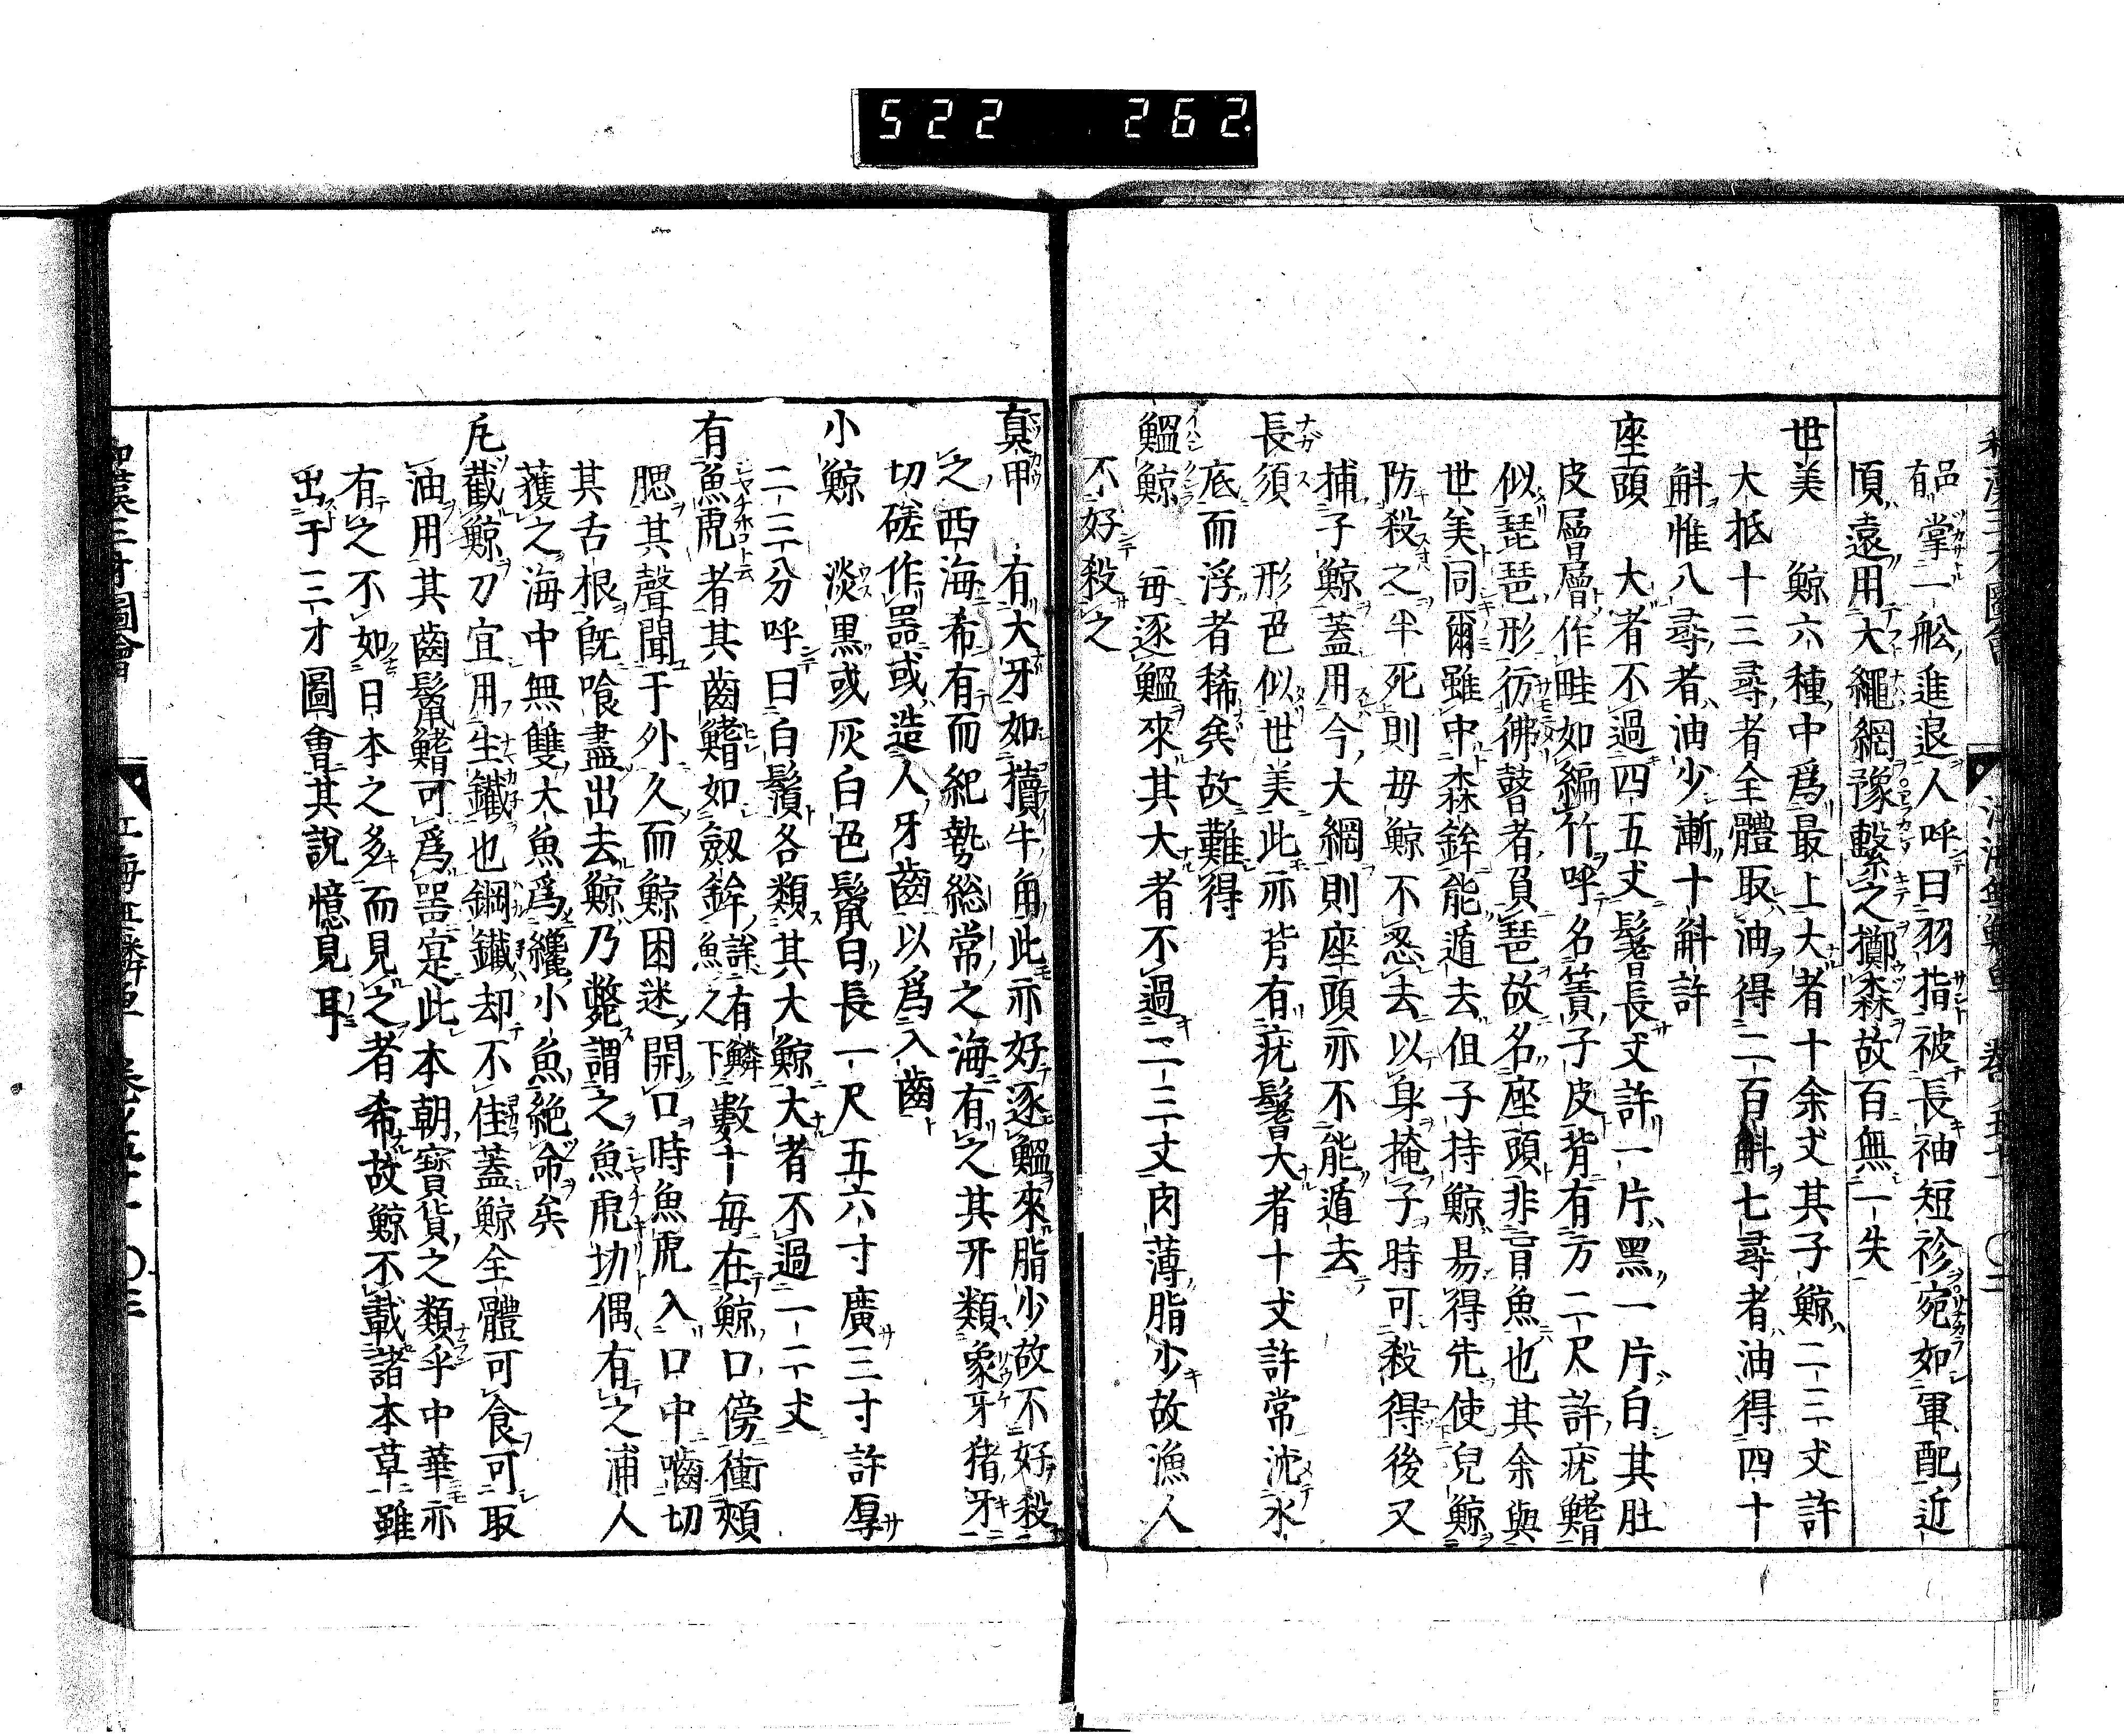 522 262.
有掌一舩進退人呼曰羽指被長袖短袗宛如軍配近
頃遠用大繩網豫繫之擲森故百無一失
世美 鯨六種中爲最上大者十余丈其子鯨二三丈許
大抵十三尋者全體取油得二百斛七尋者油得四十
斛惟八尋者油少漸十斛許
座頭 大者不過四五丈鬐長丈許一片黑一片白其肚
皮層層作畦如編竹呼名簀子皮背有方二尺許疣鰭
似琵琶形彷彿瞽者負琶故名座頭非盲魚也其余與
世美同爾雖中森鉾能遁去但子持鯨易得先使兒鯨
防殺之半死則母鯨不忍去以身掩子時可殺得後又
捕子鯨蓋用今大網則座頭亦不能遁去
長須 形色似世美此亦背有疣鬐大者十丈許常沈水
底而浮者稀矣故難得
鰮鯨 毎逐鰮來其大者不過二三丈肉薄脂少故漁人
不好殺之
眞甲 有大牙如犢牛角此亦好逐鰮來脂少故不好殺
之西海希有而紀勢総常之海有之其牙類象牙猪牙
切磋作噐或造人牙齒以爲入齒
小鯨 淡黒或灰白色鬣白長一尺五六寸廣三寸許厚
二三分呼曰白鬚各類其大鯨大者不過一二丈
有魚虎者其齒鰭如劔鉾詳有鱗魚之下數十毎在鯨口傍衝頰
腮其聲聞于外久而鯨困迷開口時魚虎入口中嚙切
其舌根既喰盡出去鯨乃斃謂之魚虎切偶有之浦人
獲之海中無雙大魚爲纔小魚絶命矣
凡截鯨刀宜用生鐵也鋼鐵却不佳蓋鯨全體可食可取
油用其齒鬣鰭可爲噐寔此本朝寳貨之類乎中華亦
有之不如日本之多而見之者希故鯨不載諸本草雖
出于三才圖會其說憶見耳